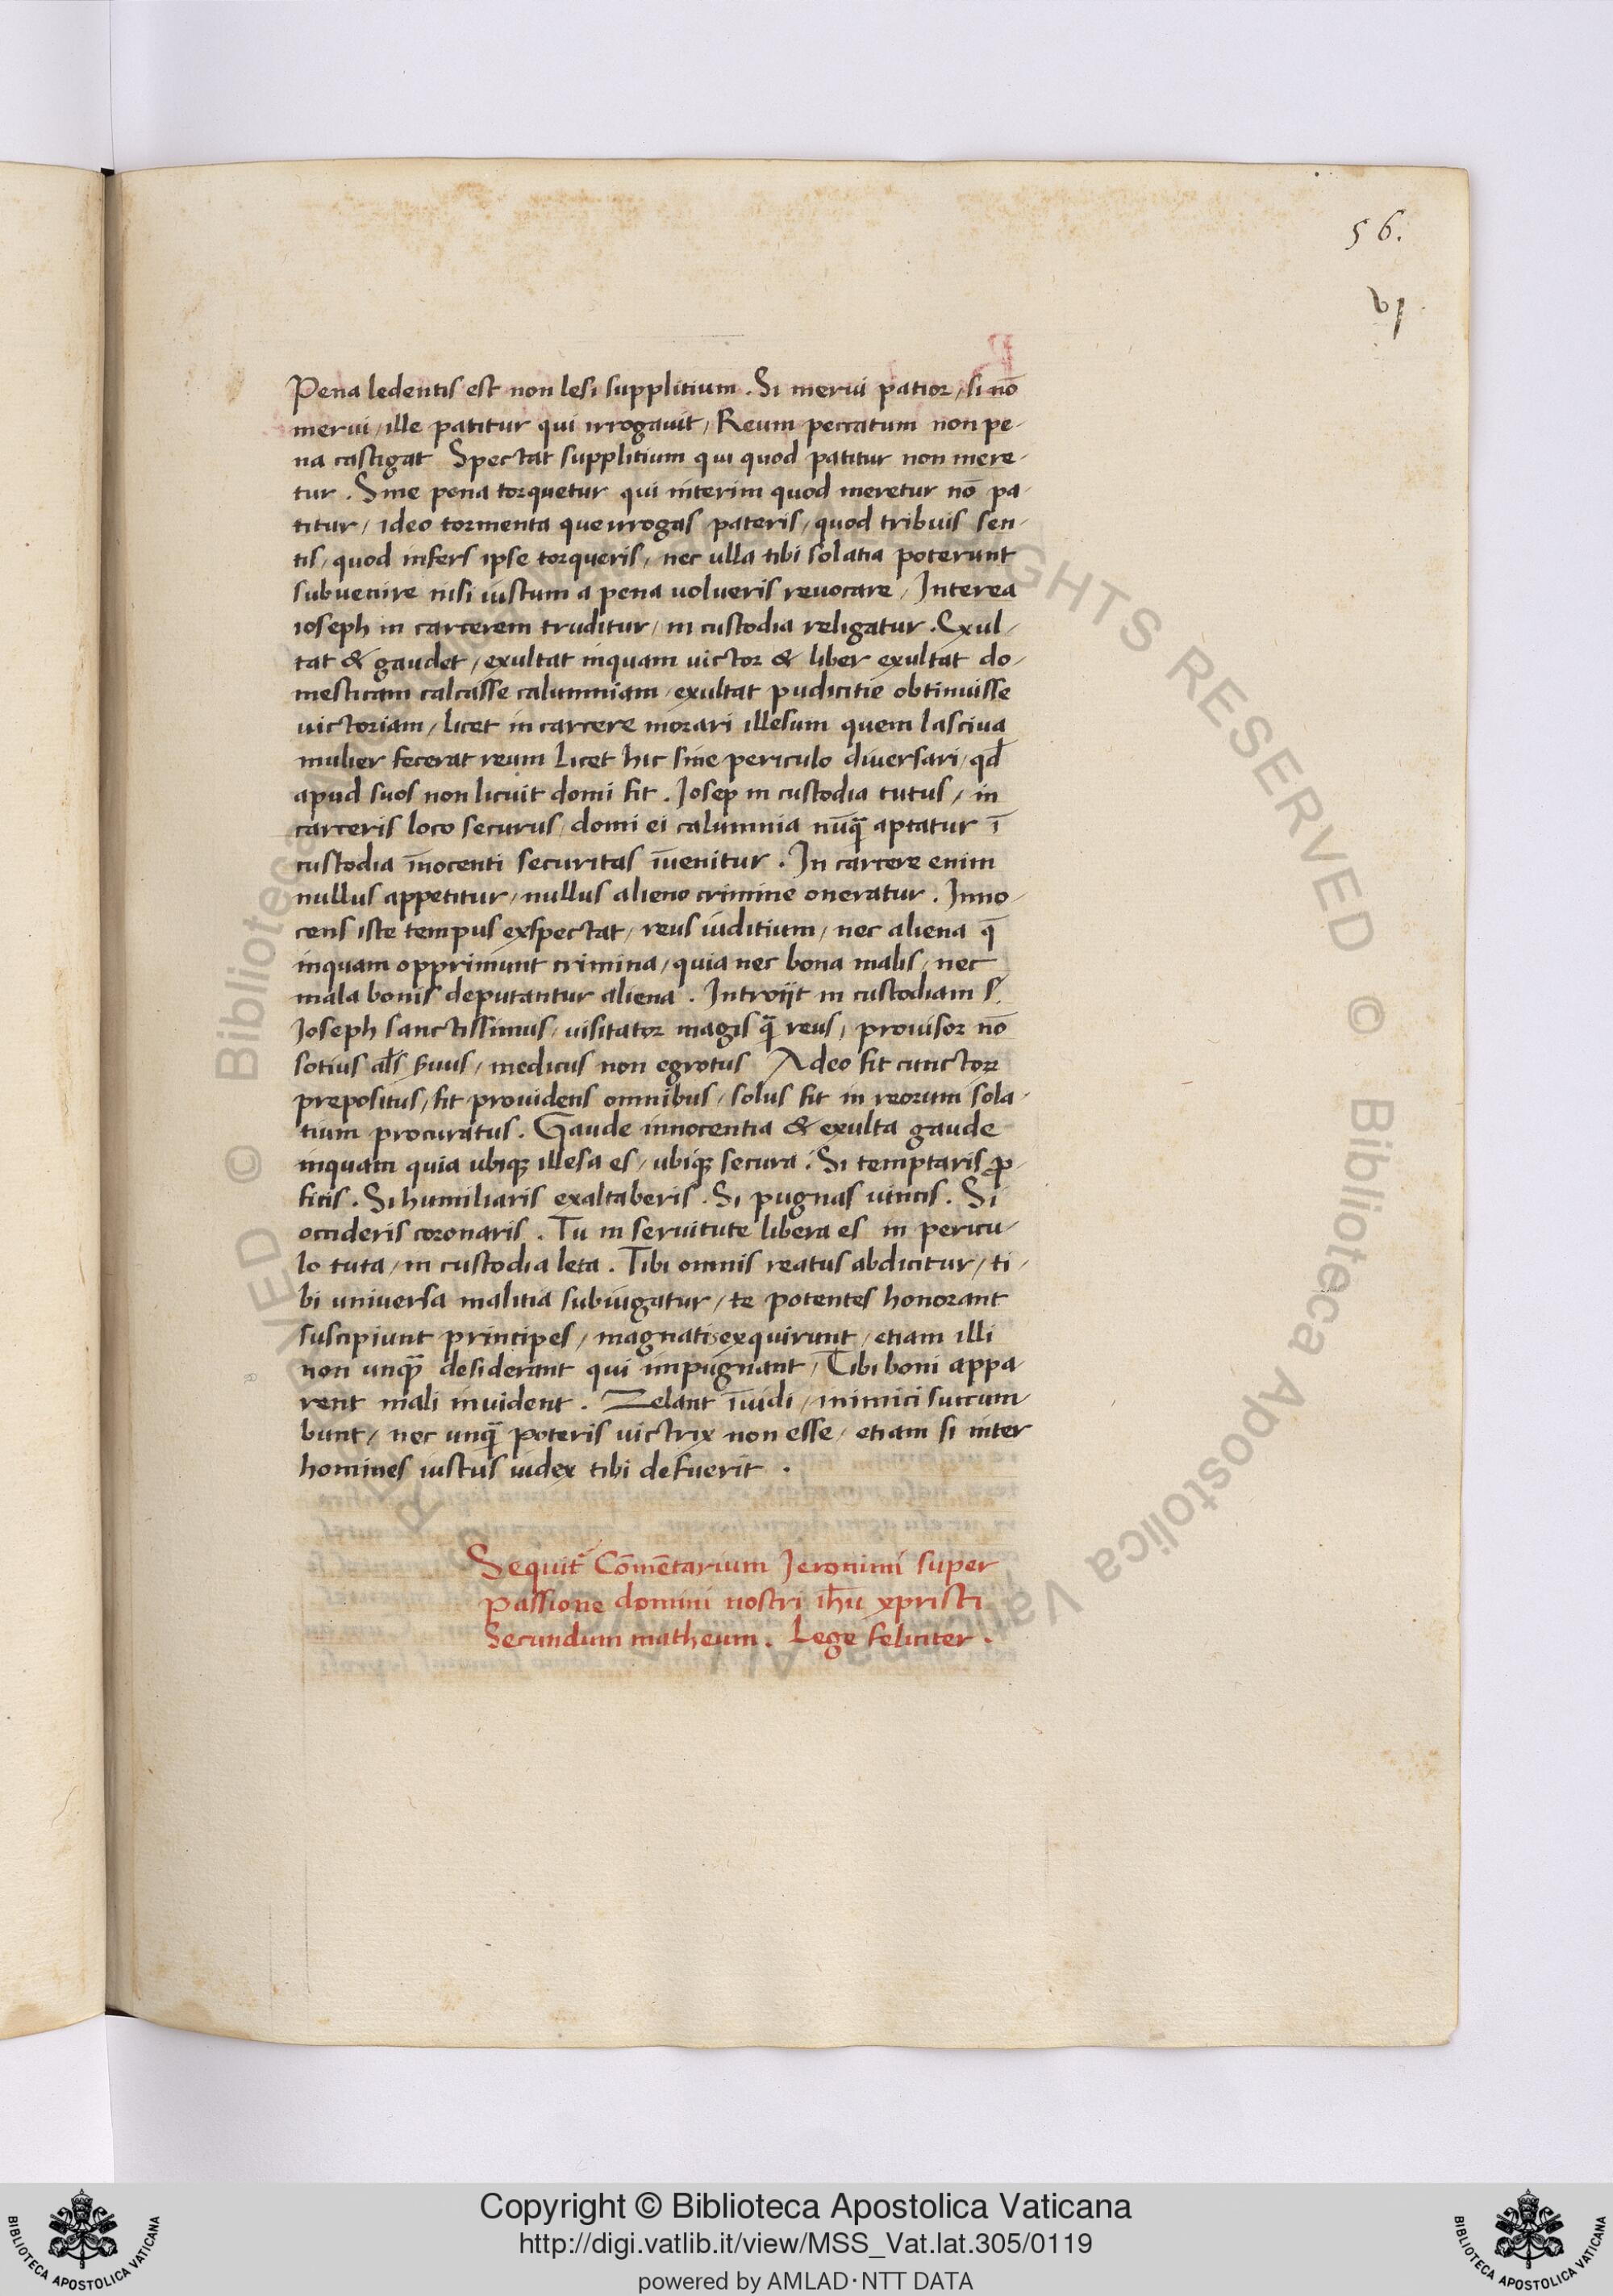 56.
Pena ledentis est non lesi supplitium. Si merui patior, si nō
merui, ille patitur qui irrogauit, Reum peccatum non pe-
na castigat Spectat supplitium qui quod patitur non mere-
tur. Sine pena torquetur qui interim quod meretur nō pa-
titur, ideo tormenta que irrogas pateris, quod tribuis sen-
tis, quod infers ipse torqueris, nec ulla tibi solatia poterunt
subuenire nisi iustum a pena uolueris reuocare, Interea
ioseph in carcerem truditur, in custodia religatur. Exul-
tat & gaudet, exultat inquam uictor & liber exultat do-
mesticam calcasse calumniam, exultat pudicitie obtinuisse
uictoriam, licet in carcere morari illesum quem lasciua
mulier fecerat reum Licet hic sine periculo diuersari, qđ
apud suos non licuit domi fit. Josep in custodia tutus, in
carceris loco securus, domi ei calumnia nūq̄ aptatur ī
custodia īnocenti securitas īuenitur. In carcere enim
nullus appetitur, nullus alieno crimine oneratur. Inno-
cens iste tempus exspectat, reus iuditium, nec aliena q̄
inquam opprimunt crimina, quia nec bona malis, nec
mala bonis deputantur aliena. Introijt in custodiam s.
Joseph sanctissimus, uisitator magis q̄ reus, prouisor nō
sotius als̄ s̄uus, medicus non egrotus Adeo fit cunctoꝝ
prepositus, fit prouidens omnibus, solus fit in reorum sola-
tium procuratus. Gaude innocentia & exulta gaude
inquam quia ubiqꝫ illesa es, ubiqꝫ secura. Si temptaris ꝓ-
ficis. Si humiliaris exaltaberis. Si pugnas uincis. Si
occideris coronaris. Tu in seruitute libera es in pericu-
lo tuta, in custodia leta. Tibi omnis reatus abdicitur, ti-
bi uniuersa malitia subiugatur, te potentes honorant
suscipiunt principes, magnatis exquirunt, etiam illi
non unq̄ desiderant qui impugnant, Tibi boni appa-
rent mali inuident. Zelant īuidi, inimici succum-
bunt, nec unq̄ poteris uictrix non esse, etiam si inter
homines iustus iudex tibi defuerit.
Sequit᷑ Cōmētarium Jeronimi super
passione domini nostri ih̄u xpristi
Secundum matheum. Lege feliciter.
Copyright © Biblioteca Apostolica Vaticana
http://digi.vatlib.it/view/MSS_Vat.lat.305/0119
powered by AMLAD·NTT DATA
BIBLIOTECA APOSTOLICA VATICANA
BIBLIOTECA APOSTOLICA VATICANA